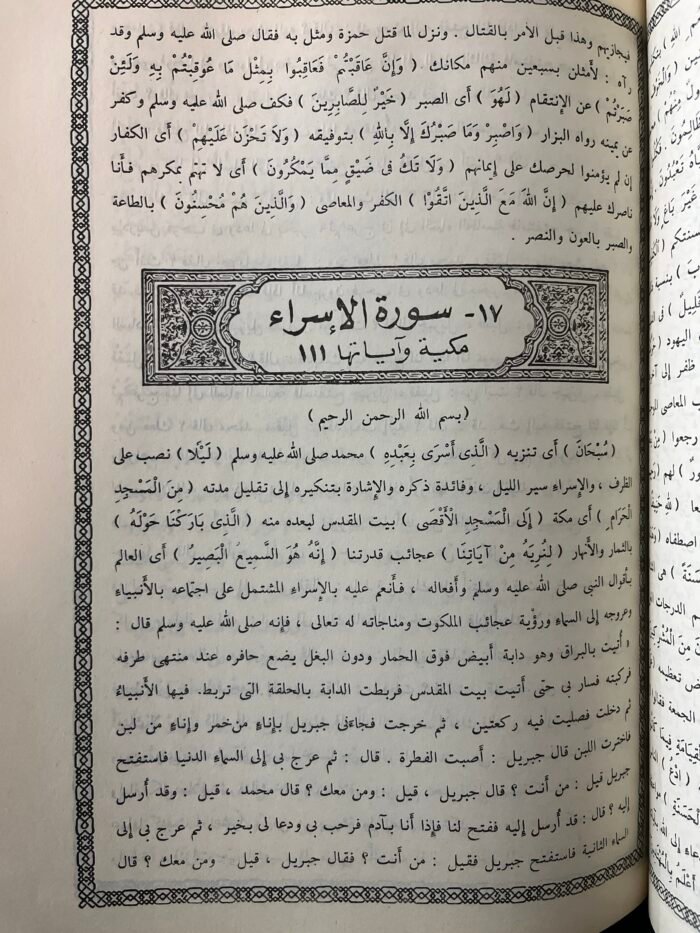 فيجازيهم وهذا قبل الأمر بالقتال . ونزل لما قتل حمزة ومثل به فقال صلى الله عليه وسلم وقد
رآه : لأمثلن بسبعين منهم مكانك ( وَإِنَّ عَاقَبْتُمْ فَعَاقِبُوا بِمِثْلِ مَا عُوقِبْتُمْ بِهِ وَلَئِنْ
صَبَرْتُمْ ) عن الإنتقام ( لَهُوَ ) أى الصبر ( خَيْرٌ لِلصَّابِرِينَ ) فكف صلى الله عليه وسلم وكفر
عن يمينه رواه البزار ( وَاصْبِرْ وَمَا صَبْرُكَ إِلَّا بِاللهِ ) بتوفيقه ( وَلَا تَحْزَن عَلَيْهِمْ ) أى الكفار
إن لم يؤمنوا لحرصك على إيمانهم ( وَلَا تَكُ فى ضَيْقٍ مِمَّا يَمْكُرُونَ ) أى لا تهتم بمكرهم فأنا
ناصرك عليهم ( إِنَّ اللهَ مَعَ الَّذِينَ اتَّقَوْا ) الكفر والمعاصى ( وَالَّذِينَ هُمْ مُحْسِنُونَ ) بالطاعة
والصبر بالعون والنصر .
١٧- سورة الإسراء
مكية وآياتها ١١١
( بسم الله الرحمن الرحيم )
( سُبْحَانَ ) أى تنزيه ( الَّذِى أَسْرَى بِعَبْدِهِ ) محمد صلى الله عليه وسلم ( لَيْلًا ) نصب على
الظرف ، والإسراء سير الليل ، وفائدة ذكره والإشارة بتنكيره إلى تقليل مدته ( مِنَ الْمَسْجِدِ
الْحَرَامِ ) أى مكة ( إِلَى الْمَسْجِدِ الْأَقْصَى ) بيت المقدس لبعده منه ( الَّذِى بَارَكْنَا حَوْلَهُ )
بالثمار والأنهار ( لِنُرِيَهُ مِنْ آيَاتِنَا ) عجائب قدرتنا ( إِنَّهُ هُوَ السَّمِيعُ الْبَصِيرُ ) أى العالم
بأقوال النبى صلى الله عليه وسلم وأفعاله ، فأنعم عليه بالإسراء المشتمل على اجتماعه بالأنبياء
وعروجه إلى السماء ورؤية عجائب الملكوت ومناجاته له تعالى ، فإنه صلى الله عليه وسلم قال :
« أُتيت بالبراق وهو دابة أبيض فوق الحمار ودون البغل يضع حافره عند منتهى طرفه
فركبته فسار بى حتى أتيت بيت المقدس فربطت الدابة بالحلقة التى تربط. فيها الأنبياءُ
ثم دخلت فصليت فيه ركعتين ، ثم خرجت فجاءنى جبريل بإناءٍ من خمر وإناءٍ من لبن
فاخترت اللبن قال جبريل : أصبت الفطرة . قال : ثم عرج بى إلى السماء الدنيا فاستفتح
جبريل قيل : من أنت ؟ قال جبريل ، قيل : ومن معك ؟ قال محمد ، قيل : وقد أُرسل
إليه ؟ قال : قد أُرسل إليه ففتح لنا فإذا أنا بآدم فرحب بى ودعا لى بخير ، ثم عرج بى إلى
السماء الثانية فاستفتح جبريل فقيل : من أنت ؟ فقال جبريل ، قيل ومن معك ؟ قال